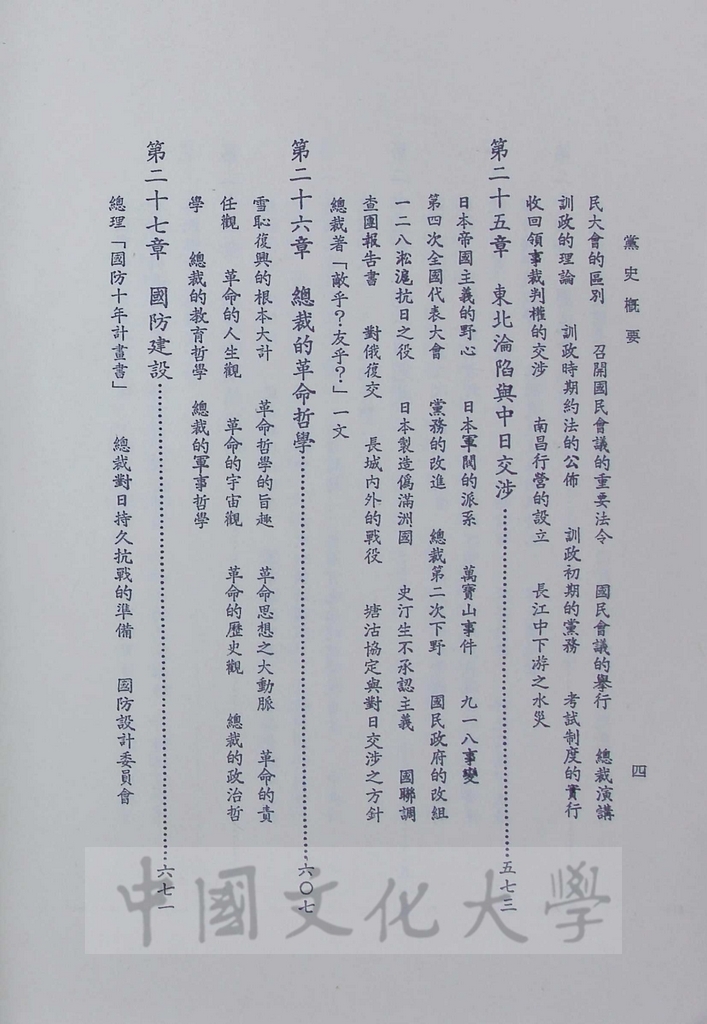 黨史概要
四
民大會的區別　召開國民會議的重要法令　國民會議的舉行　總裁演講
訓政的理論　訓政時期約法的公佈　訓政初期的黨務　考試制度的實行
收回領事裁判權的交涉　南昌行營的設立　長江中下游之水災
第二十五章　東北淪陷與中日交涉……五七三
日本帝國主義的野心　日本軍閥的派系　萬寶山事件　九一八事變
第四次全國代表大會　黨務的改進　總裁第二次下野　國民政府的改組
一二八淞滬抗日之役　日本製造偽滿洲國　史汀生不承認主義　國聯調
查團報告書　對俄復交　長城內外的戰役　塘沽協定與對日交涉之方針
總裁著「敵乎？友乎？」一文
第二十六章　總裁的革命哲學……六〇七
雪恥復興的根本大計　革命哲學的旨趣　革命思想之大動脈　革命的責
任觀　革命的人生觀　革命的宇宙觀　革命的歷史觀　總裁的政治哲
學　總裁的教育哲學　總裁的軍事哲學
第二十七章　國防建設……六七一
總理「國防十年計畫書」　總裁對日持久抗戰的準備　國防設計委員會
中國文化大學